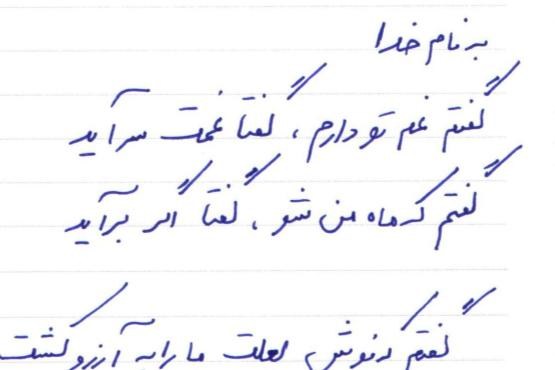 به نام خدا
گفتم غم تو دارم ، گفتا غمت سرآید
گفتم که ماه من شو ، گفتا اگر برآید
گفتم که نوش لعلت ما را به آرزو کشت